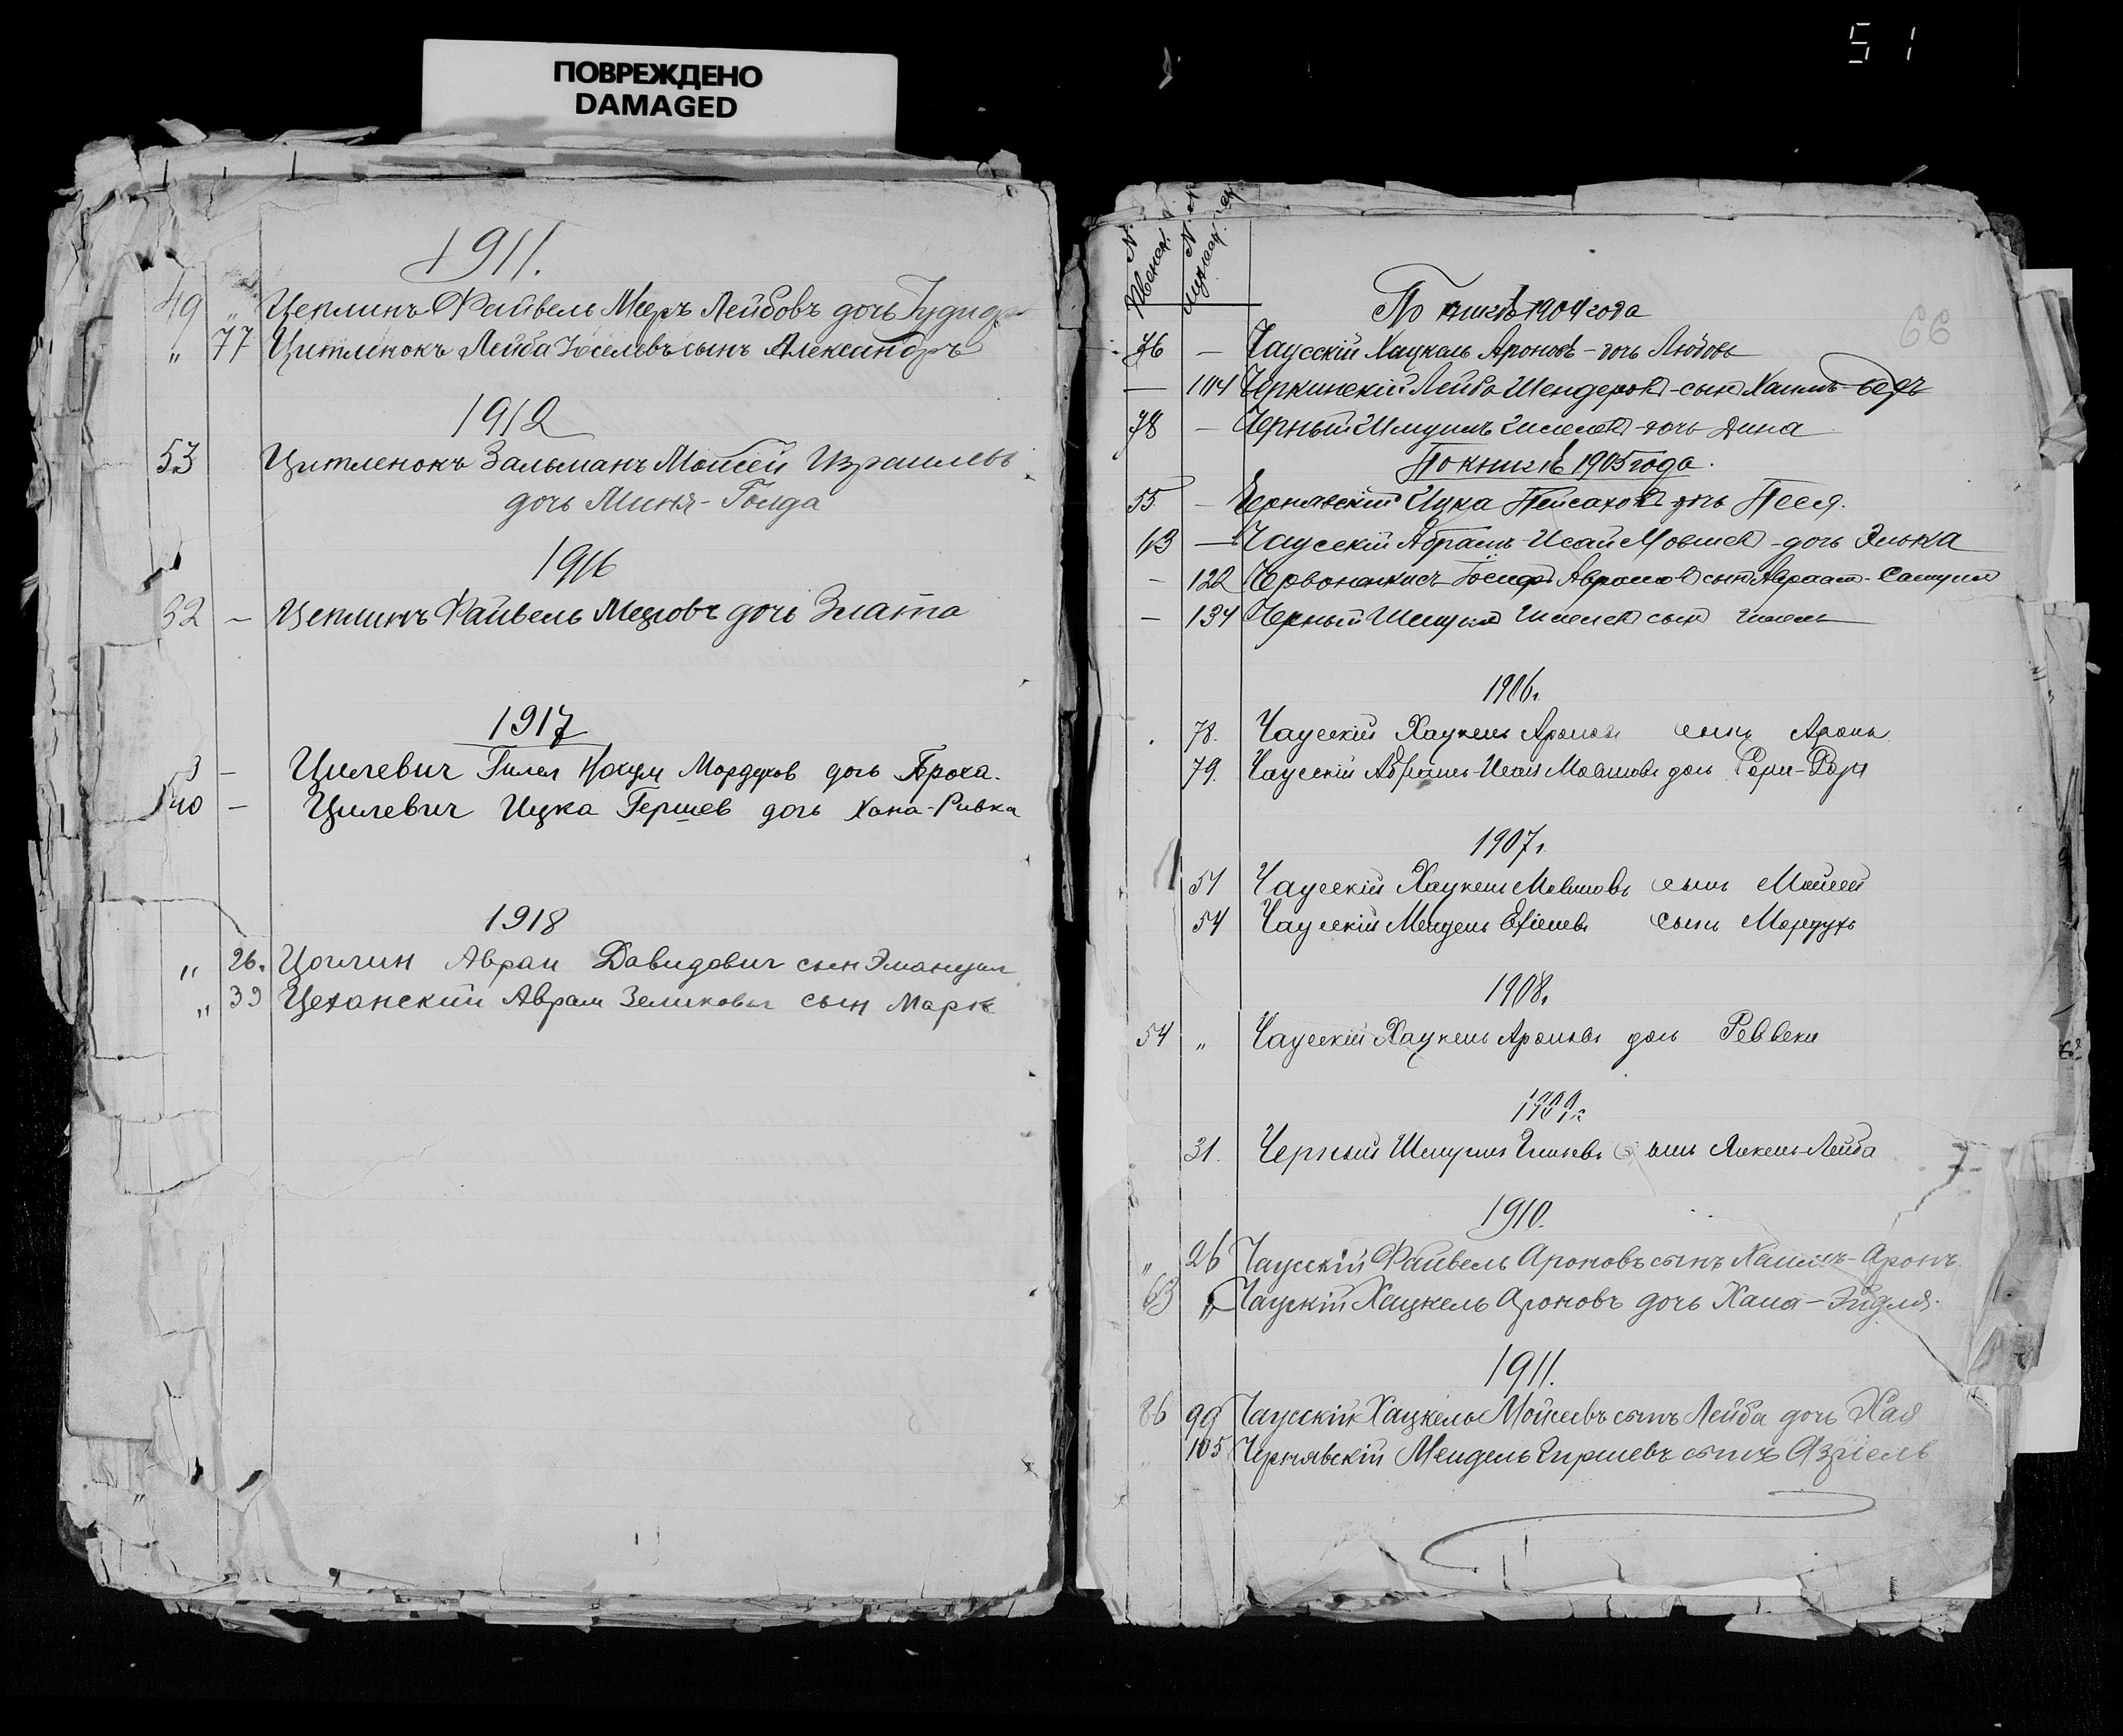 51
ПОВРЕЖДЕНО
DAMAGED
1911.
49 " Цеплинъ Файвель Мееръ Лейбовъ дочь
" 77 Цитленокъ Лейба сынъ Александръ
1912
53 Цитленокъ Зальманъ Мойсей Израилевъ
дочь Миня-Голда
1916
32 – Цеплинъ Файвель Меэровъ дочь Злата
1917
3 – Цилевич Гилел Нохум Мордухов дочь Броха.
40 – Цилевич Ицка Гершев дочь Хана-Ривка
1918
" 26. Авраам Давидович сын Эмануил
" 39 Цеханский Аврам Зеликович сын Марк
66
По книгѣ 1904 года
76 — Чаусскій Хацкель Ароновъ - дочь Любовь
— 104 Черкинскій Лейба Шендеровъ - сынъ Хаимъ-беръ
78 — Черный Шмуилъ дочь Дина
По книгѣ 1905 года.
55 — Чернявскій Ицка Пейсаховъ дочь Песя.
63 — Чаусскій Абрамъ-Исай Мовшевъ - дочь Элька
– 122 Иосифъ Абрамовъ сынъ Авраам-Самуил
– 134 Черный Шмуилъ сынъ
1906.
78. Чаусскій Хацкель Ароновъ сынъ Аронъ
79. Чаусскій Абрамъ-Исай Мовшовъ дочь
1907.
51 Чаусскій Хацкель Мовшовъ сынъ Мойсей
54 Чаусскій Мендель сынъ Мордухъ
1908.
54 " Чаусскій Хацкель Ароновъ дочь Реввека
1909.
31. Черный Шмуилъ сынъ Янкель-Лейба
1910.
" 26 Чаусскій Файвель Ароновъ сынъ Хаимъ-Аронъ.
63 " Чаускій Хацкель Ароновъ дочь Хана-Эйдля.
1911.
86 99 Чаусскій Хацкель Мойсеевъ сынъ Лейба дочь Хая
105 Чернявскій Мендель Гиршевъ сынъ Азріель